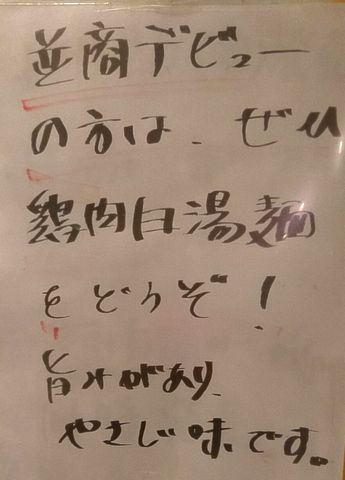 並商デビュー
の方は、ぜひ
鶏肉白湯麺
をどうぞ!
旨みがあり、
やさしい味です。